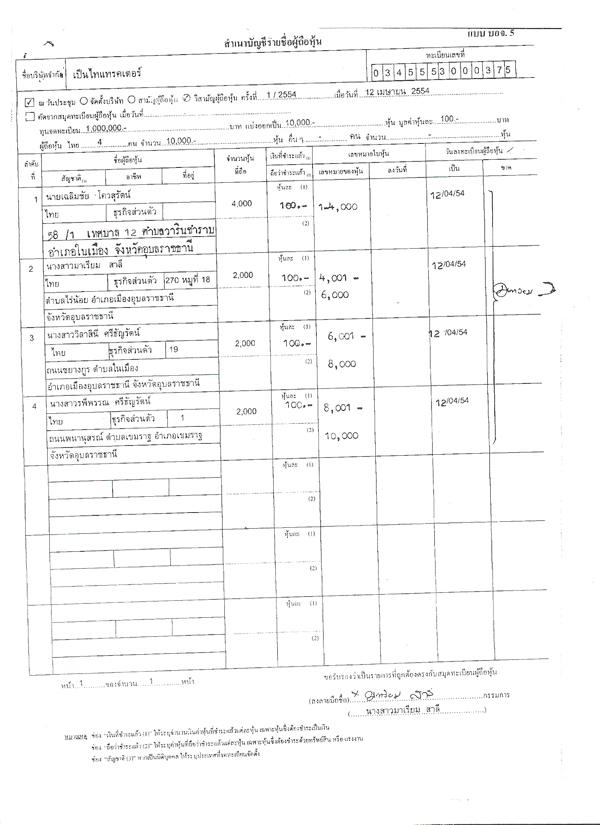 แบบ บอจ. 5
สำเนาบัญชีรายชื่อผู้ถือหุ้น
ทะเบียนเลขที่
ชื่อบริษัทจำกัด เป็นไทแทรคเตอร์
0345553000375
ณ วันประชุม จัดตั้งบริษัท สามัญผู้ถือหุ้น วิสามัญผู้ถือหุ้น ครั้งที่ 1 / 2554 เมื่อวันที่ 12 เมษายน 2554
คัดจากสมุดทะเบียนผู้ถือหุ้น เมื่อวันที่
ทุนจดทะเบียน 1,000,000.- บาท แบ่งออกเป็น 10,000.- หุ้น มูลค่าหุ้นละ 100.- บาท
ผู้ถือหุ้น ไทย 4 คน จำนวน 10,000.- หุ้น อื่น ๆ - คน จำนวน - หุ้น
ลำดับที่ ชื่อผู้ถือหุ้น จำนวนหุ้นที่ถือ เงินที่ชำระแล้ว(1) เลขหมายใบหุ้น วันลงทะเบียนผู้ถือหุ้น
สัญชาติ(3) อาชีพ ที่อยู่ ถือว่าชำระแล้ว(2) เลขหมายของหุ้น ลงวันที่ เป็น ขาด
1 นายเฉลิมชัย โควสุรัตน์ 4,000 หุ้นละ (1) 100.- 1-4,000 12/04/54
ไทย ธุรกิจส่วนตัว
(2)
58 /1 เทศบาล 12 ตำบลวารินชำราบ
อำเภอในเมือง จังหวัดอุบลราชธานี
2 นางสาวมาเรียม สาลี 2,000 หุ้นละ (1) 100.- 4,001 - 12/04/54
ไทย ธุรกิจส่วนตัว 270 หมู่ที่ 18
(2) 6,000
ตำบลไร่น้อย อำเภอเมืองอุบลราชธานี
จังหวัดอุบลราชธานี
3 นางสาววิลาสินี ศรีธัญรัตน์ 2,000 หุ้นละ (1) 100.- 6,001 - 12 /04/54
ไทย ธุรกิจส่วนตัว 19
(2) 8,000
ถนนชยางกูร ตำบลในเมือง
อำเภอเมืองอุบลราชธานี จังหวัดอุบลราชธานี
4 นางสาวรพีพรรณ ศรีธัญรัตน์ 2,000 หุ้นละ (1) 100.- 8,001 - 12/04/54
ไทย ธุรกิจส่วนตัว 1
(2) 10,000
ถนนพนานุสรณ์ ตำบลเขมราฐ อำเภอเขมราฐ
จังหวัดอุบลราชธานี
หุ้นละ (1)
(2)
หุ้นละ (1)
(2)
หุ้นละ (1)
(2)
หน้า 1 ของจำนวน 1 หน้า
ขอรับรองว่าเป็นรายการที่ถูกต้องตรงกับสมุดทะเบียนผู้ถือหุ้น
(ลงลายมือชื่อ) กรรมการ
( นางสาวมาเรียม สาลี )
หมายเหตุ ช่อง "เงินที่ชำระแล้ว (1)" ให้ระบุจำนวนเงินค่าหุ้นที่ชำระแล้วแต่ละหุ้น เฉพาะหุ้นซึ่งต้องชำระเป็นเงิน
ช่อง "ถือว่าชำระแล้ว (2)" ให้ระบุค่าหุ้นที่ถือว่าชำระแล้วแต่ละหุ้น เฉพาะหุ้นซึ่งต้องชำระด้วยทรัพย์สิน หรือ แรงงาน
ช่อง "สัญชาติ (3)" หากเป็นนิติบุคคล ให้ระบุประเทศที่จดทะเบียนจัดตั้ง